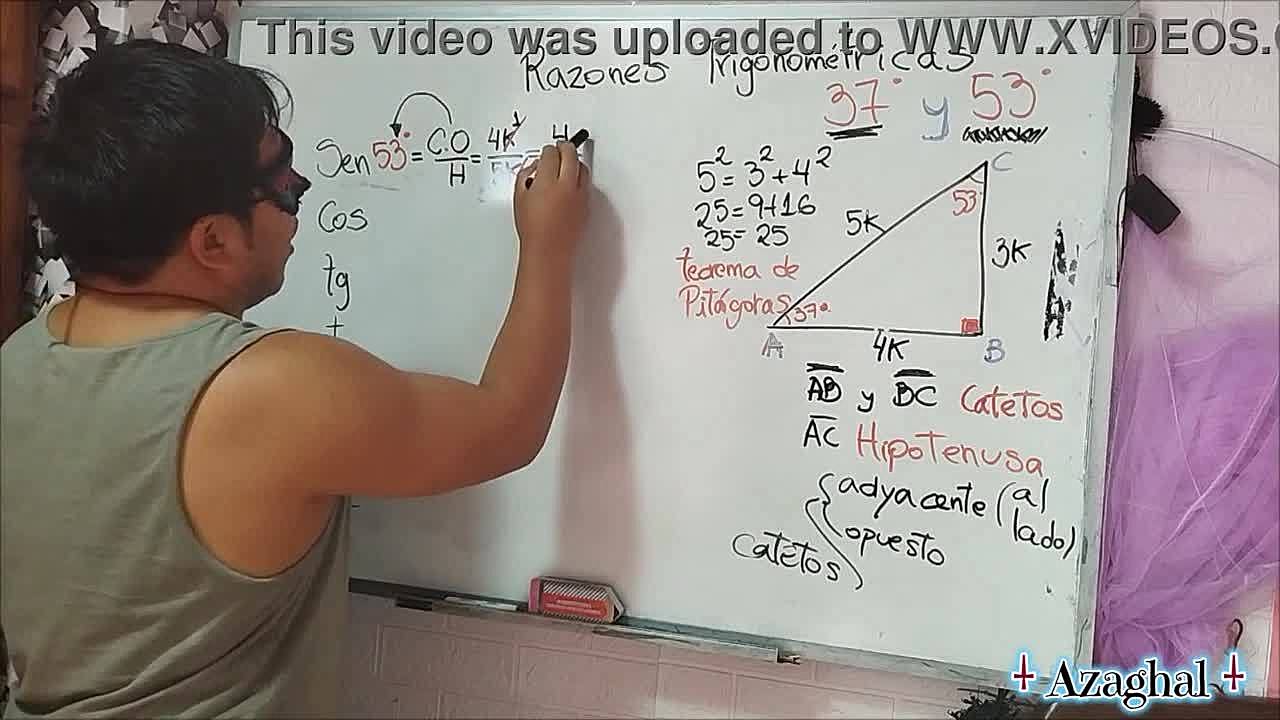 This video was uploaded to WWW.XVIDEOS.C
Razones Trigonométricas
37° y 53°
Sen 53° = C.O / H = 4K / 5K = 4
Cos
tg
5² = 3² + 4²
25 = 9 + 16
25 = 25
teorema de
Pitágoras
C
53
5K
3K
37°
A
4K
B
AB y BC Catetos
AC Hipotenusa
Catetos
adyacente (al lado)
opuesto
Azaghal